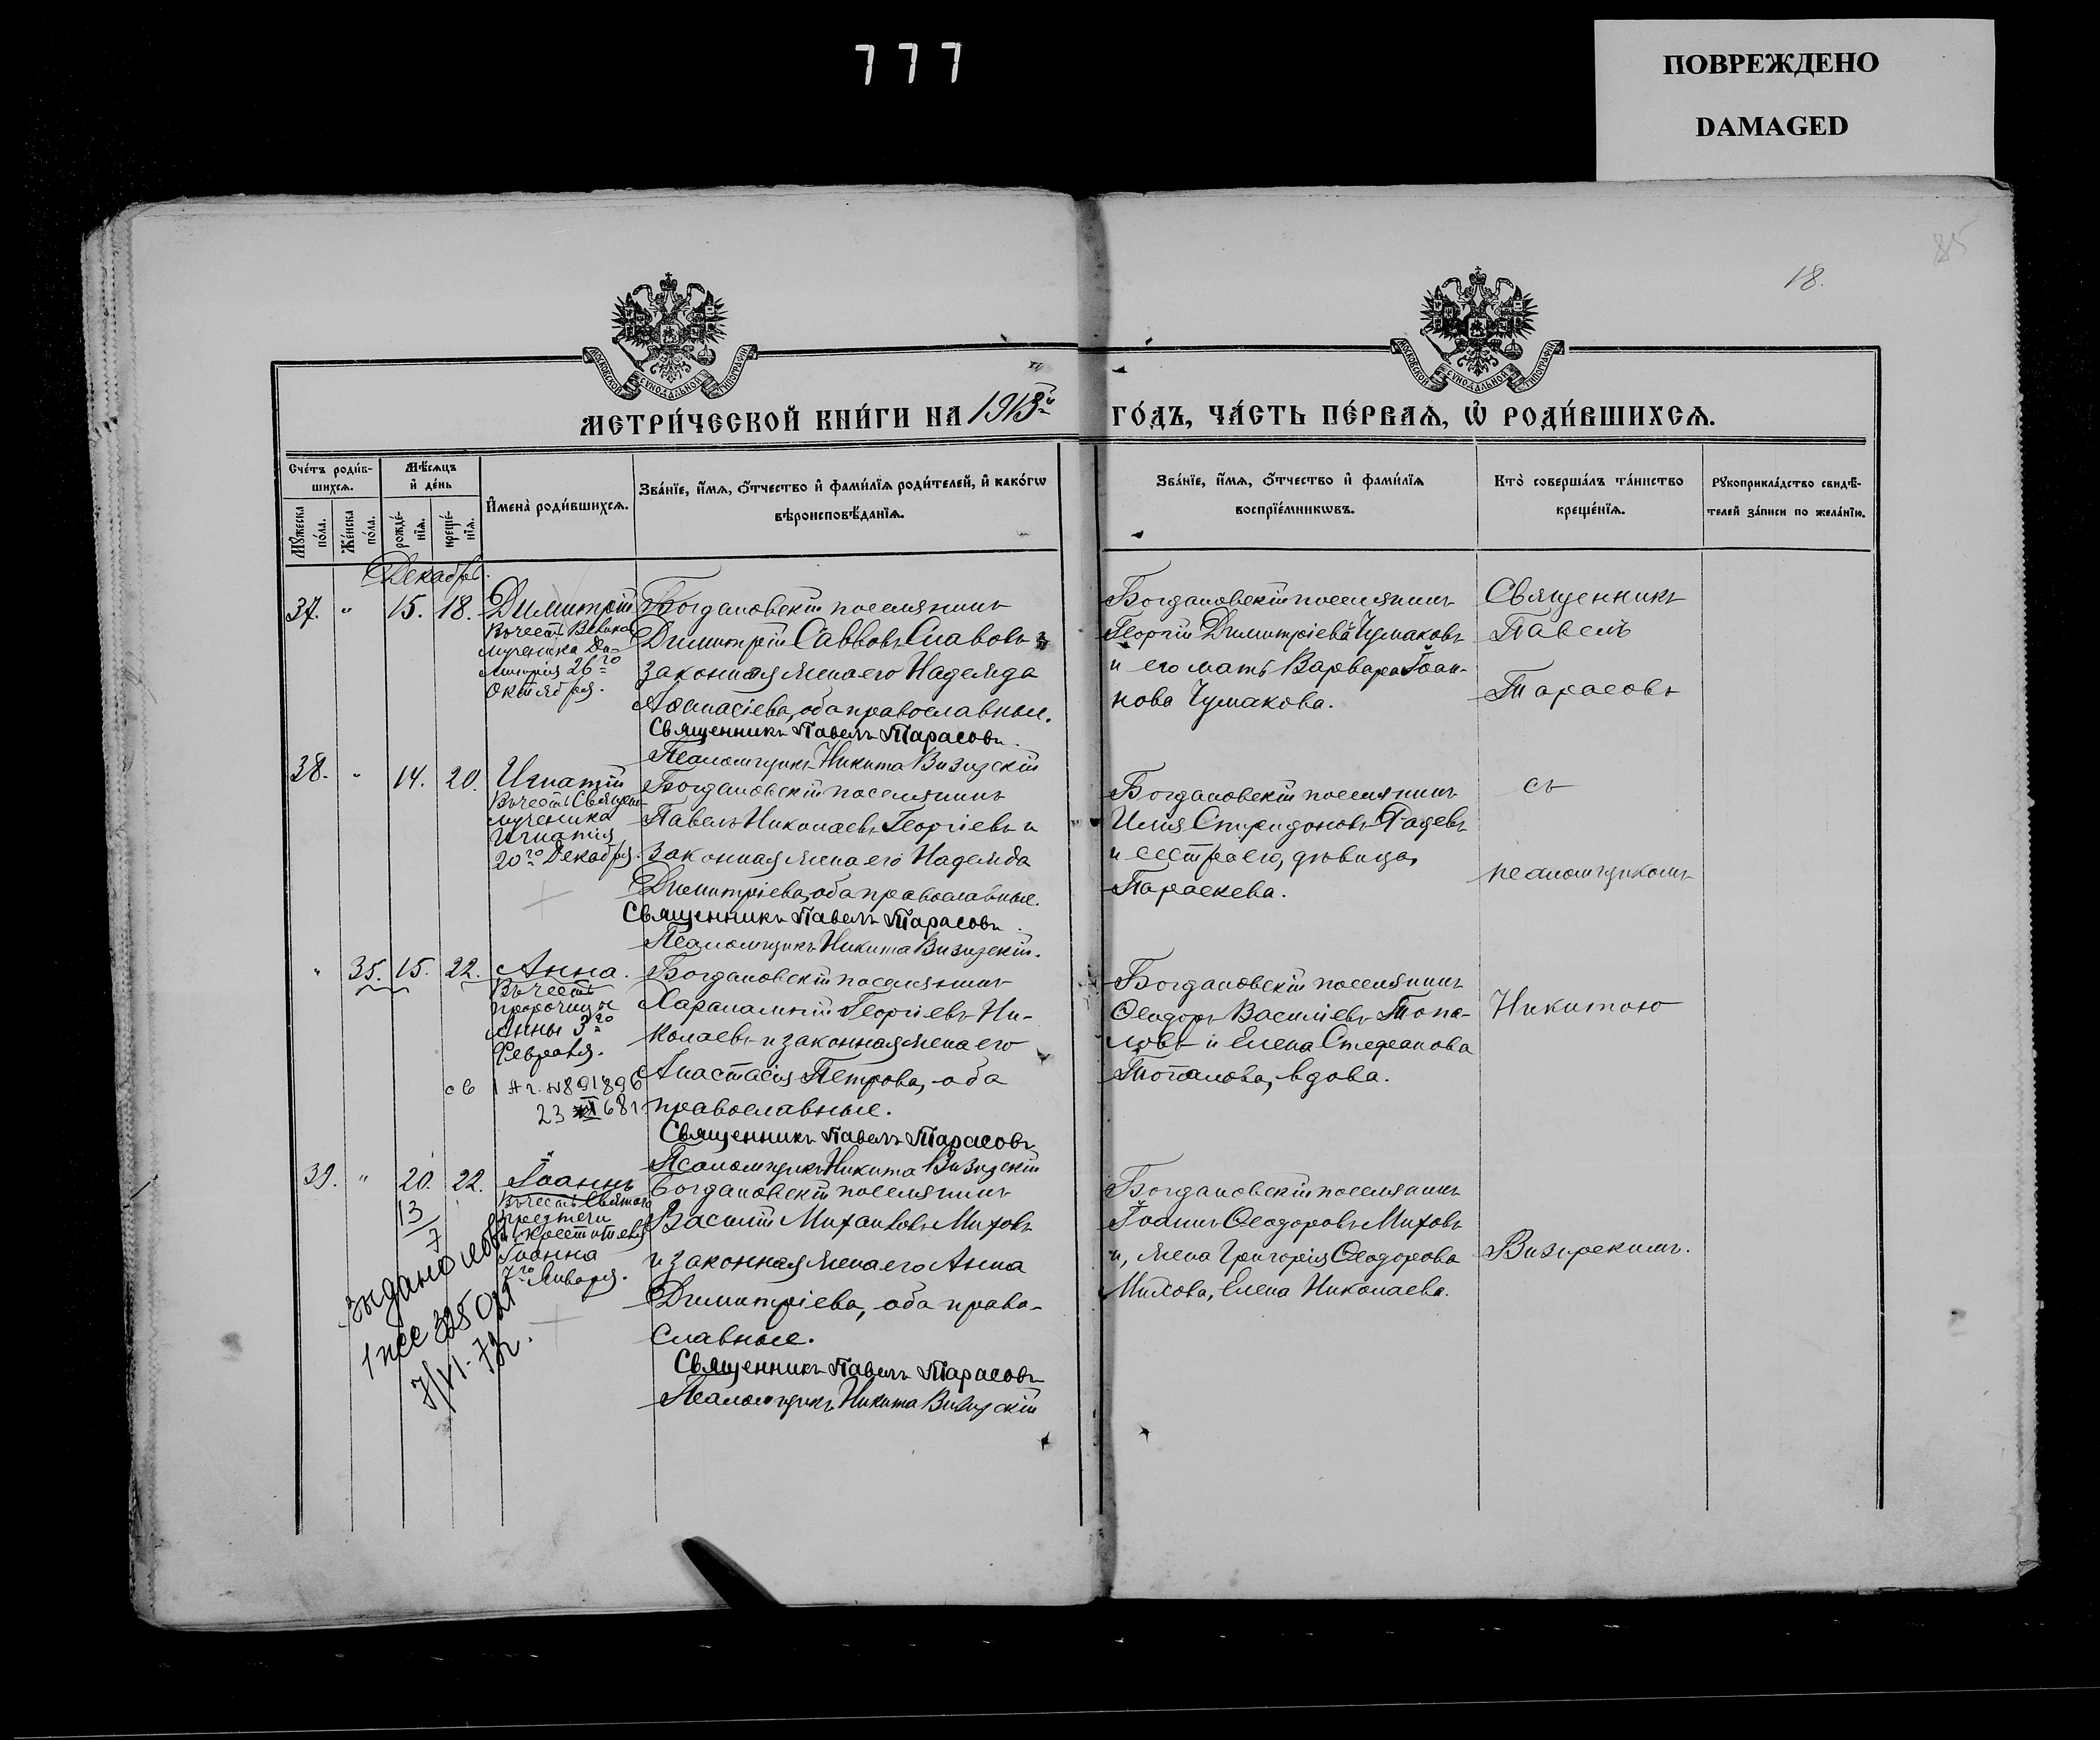 777
ПОВРЕЖДЕНО
DAMAGED
85
18.
МОСКОВСКОЙ СѴНОДАЛЬНОЙ ТИПОГРАФІИ
МОСКОВСКОЙ СѴНОДАЛЬНОЙ ТИПОГРАФІИ
МЕТРИ́ЧЕСКОЙ КНИ́ГИ НА 1913й ГО́ДЪ, ЧА́СТЬ ПЕ́РВАѦ, Ѡ҆ РОДИ́ВШИХСѦ.
Сче́тъ роди́в-
шихсѧ.
Мꙋ́жеска по́ла.
Же́нска по́ла.
Мѣ́сѧцъ
и҆ де́нь
рожде́-
нїѧ.
креще́-
нїѧ.
И҆мена̀ роди́вшихсѧ.
Зва́нїе, и҆́мѧ, ѻ҆́тчество и҆ фами́лїѧ роди́телей, и҆ како́гѡ
вѣроисповѣ́данїѧ.
Зва́нїе, и҆́мѧ, ѻ҆́тчество и҆ фами́лїѧ
воспрїе́мникѡвъ.
Кто̀ соверша́лъ та́инство
креще́нїѧ.
Рꙋкоприкла́дство свидѣ́-
телей за́писи по жела́нїю.
Декабрь.
37. " 15. 18. Димитрій
Въ честь Велико-
мученика Ди-
митрія 26го
Октября.
Богдановскій поселянинъ
Димитрій Саввовъ Славовъ и
законная жена его Надежда
Аѳанасіева, оба православные.
Священникъ Павелъ Тарасовъ
Псаломщикъ Никита Визирскій
Богдановскій поселянинъ
Георгій Димитріевъ Чумаковъ
и его мать Варвара Іоан-
нова Чумакова.
Священникъ
Павелъ
Тарасовъ
38. " 14. 20. Игнатій
Въ честь Священ-
мученика
Игнатія
20го Декабря.
Богдановскій поселянинъ
Павелъ Николаевъ Георгіевъ и
законная жена его Надежда
Димитріева, оба православные.
Священникъ Павелъ Тарасовъ
Псаломщикъ Никита Визирскій.
Богдановскій поселянинъ
Илія Спиридоновъ Радевъ
и сестра его, дѣвица,
Параскева.
съ
псаломщикомъ
" 35. 15. 22. Анна.
Въ честь
пророчицы
Анны 3го
Февраля.
св 1 Аг. №891896
23 XI 681
Богдановскій поселянинъ
Харалампій Георгіевъ Ни-
колаевъ и законная жена его
Анастасія Петрова, оба
православные.
Священникъ Павелъ Тарасовъ
Псаломщикъ Никита Визирскій
Богдановскій поселянинъ
Ѳеодоръ Василіевъ Топа-
ловъ и Елена Стефанова
Топалова, вдова.
Никитою
39. " 20. 22. Іоаннъ
13
7
Въ честь Святаго
Предтечи
и Крестителя
Іоанна
7го Января.
Богдановскій поселянинъ
Василій Михаиловъ Миховъ
и законная жена его Анна
Димитріева, оба право-
славные.
Священникъ Павелъ Тарасовъ
Псаломщикъ Никита Визирскій
Богдановскій поселянинъ
Іоаннъ Ѳеодоровъ Миховъ
и, жена Григорія Ѳеодорова
Михова, Елена Николаева.
Визирскимъ.
7/VI-73г.